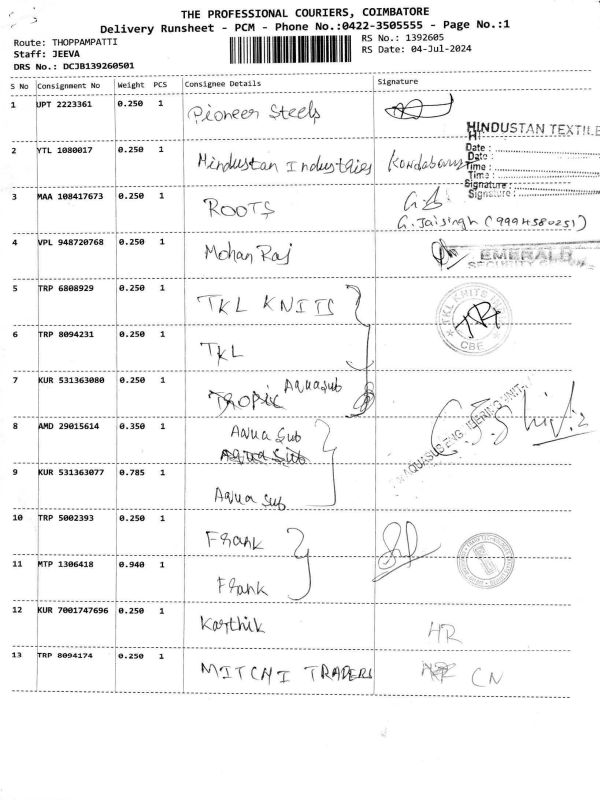 THE PROFESSIONAL COURIERS, COIMBATORE
Delivery Runsheet - PCM - Phone No.:0422-3505555 - Page No.:1
Route: THOPPAMPATTI RS No.: 1392605
Staff: JEEVA RS Date: 04-Jul-2024
DRS No.: DCJB139260501
S No Consignment No Weight PCS Consignee Details Signature
1 UPT 2223361 0.250 1 Pioneer Steels
HINDUSTAN TEXTILE
2 YTL 1080017 0.250 1 Hindustan Industries
Date :
Date :
Time :
Time :
Signature :
Signature :
3 MAA 108417673 0.250 1 ROOTS
G. Jaisingh (9994580251)
4 VPL 948720768 0.250 1 Mohan Raj EMERALD
SECURITY
5 TRP 6808929 0.250 1 TKL KNITS TKL KNITS
6 TRP 8094231 0.250 1 TKL CBE
7 KUR 531363080 0.250 1 TROPIC Aquasub
8 AMD 29015614 0.350 1 Aqua Sub
Aqua Sub
AQUASUB ENGINEERING UNIT-
9 KUR 531363077 0.785 1 Aqua Sub
10 TRP 5002393 0.250 1 Frank
11 MTP 1306418 0.940 1 Frank
12 KUR 7001747696 0.250 1 Karthik HR
13 TRP 8094174 0.250 1 MITCHI TRADERS CN